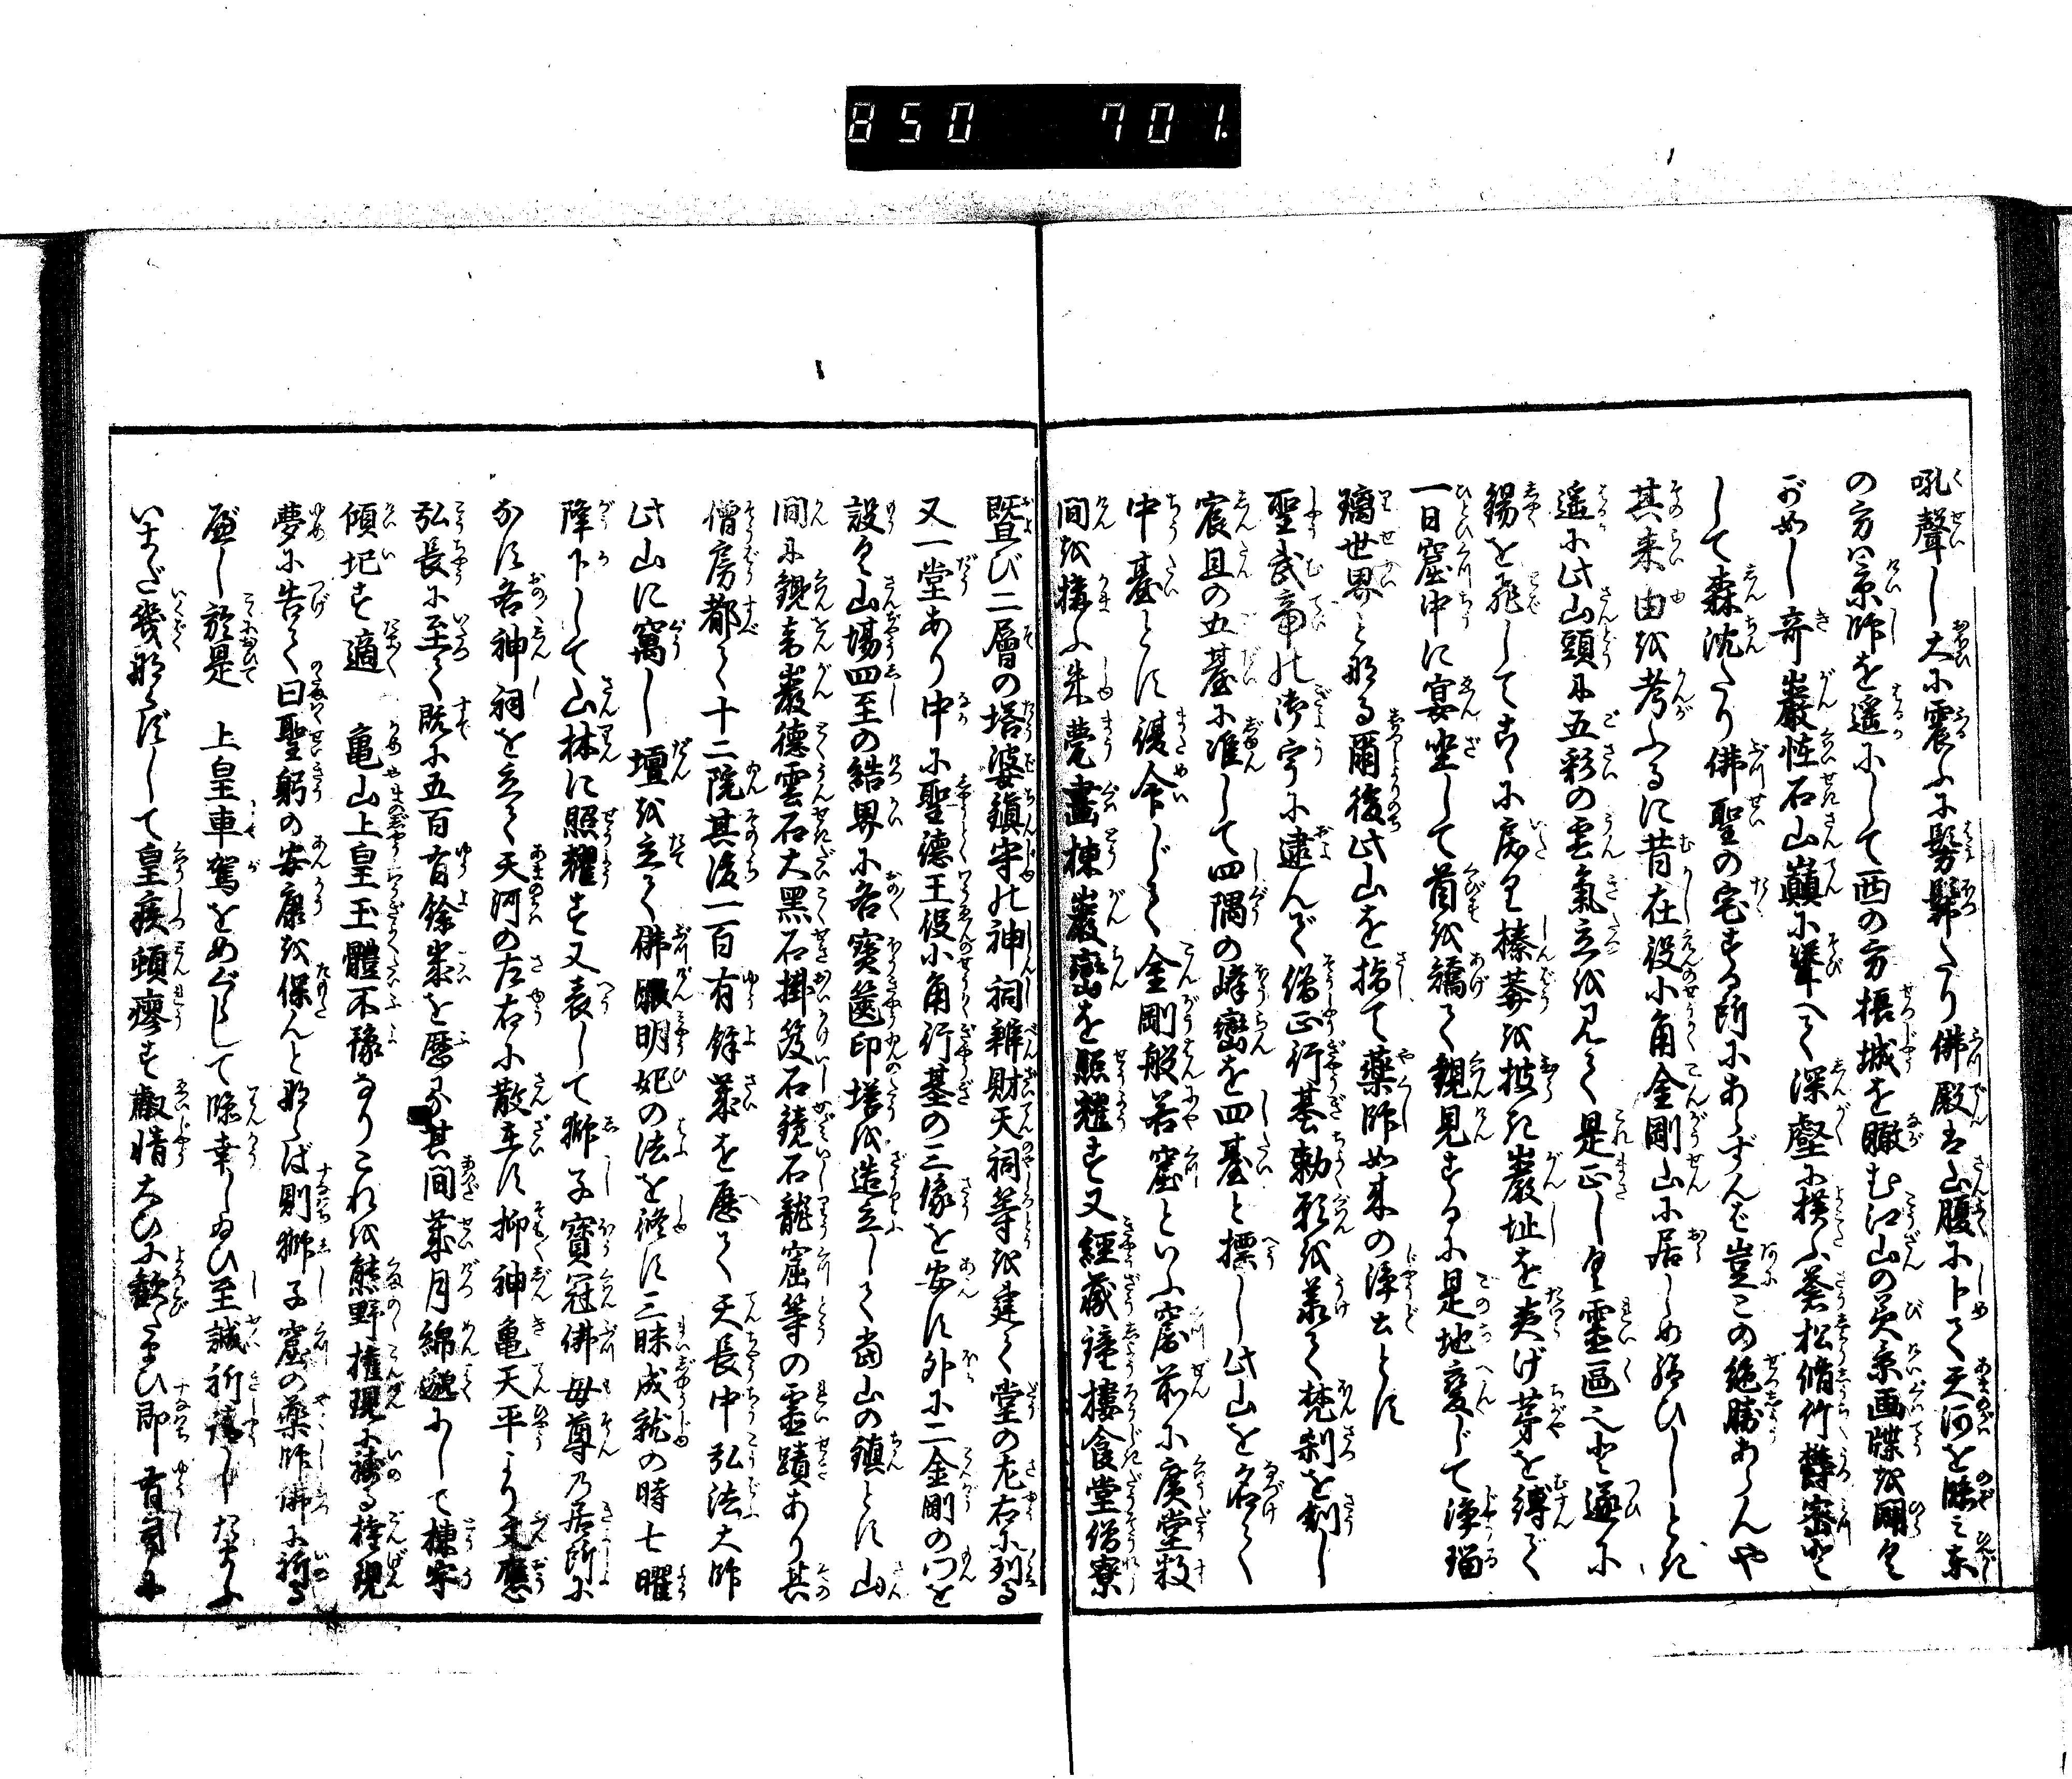 850 701.
吼聲し大に震ふに髣髴たり佛殿は山腹に卜て天河を臨み東
の方は京師を遥にして西の方摂城を瞰む江山の美京画牒を開く
が如し奇巌恠石山巓に聳へて深壑に横ふ蒼松脩竹欝密と
して森沈たり佛聖の宅する所にあらずんば豈この絶勝あらんや
其来由を考ふるに昔在役小角金剛山に居しめ給ひしとき
遥に此山頭に五彩の雲氣立を見て是正しく霊區也と遂に
錫を飛してこゝに戻り榛莽を披き巌址を夷げ茅を縛で
一日窟中に宴坐して首を矯て観見するに是地変じて浄瑠
璃世界と那る爾後此山を指て薬師如来の浄土とす
聖武帝の御宇に逮んで僧正行基勅願を承て梵刹を創し
宸旦の五臺に准して四隅の峰巒を四臺と標し此山を名て
中臺とす復命じて金剛般若窟といふ窟前に廣堂数
間を搆ふ朱甍畫棟巌巒を照耀す又經蔵鐘樓食堂僧寮
曁び二層の塔婆鎮守の神祠辨財天祠等を建て堂の左右に列る
又一堂あり中に聖徳王役小角行基の三像を安す外に二金剛の門を
設く山場四至の結界に各寳篋印塔を造立して當山の鎮とす山
間に觀音巖徳雲石大黒石掛笈石鏡石龍窟等の霊蹟あり其
僧房都て十二院其後一百有餘歳を歴て天長中弘法大師
此山に寓し壇を立て佛眼明妃の法を修す三昧成就の時七曜
降下して山林に照耀す又表して獅子寳冠佛母尊乃居所に
なす各神祠を立て天河の左右に散在す抑神亀天平より文應
弘長に至て既に五百有餘歳を歴ぬ其間歳月綿邈にして棟宇
傾圯す適　亀山上皇玉體不豫なりこれを熊野権現に祷る権現
夢に告て曰聖躬の安康を保んと那らば則獅子窟の薬師佛に祈る
べし於是　上皇車駕をめぐらして臨幸したまひ至誠祈請したまふ
いまだ幾那らずして皇疾頓瘳す叡情大ひに歓たまひ即有司に